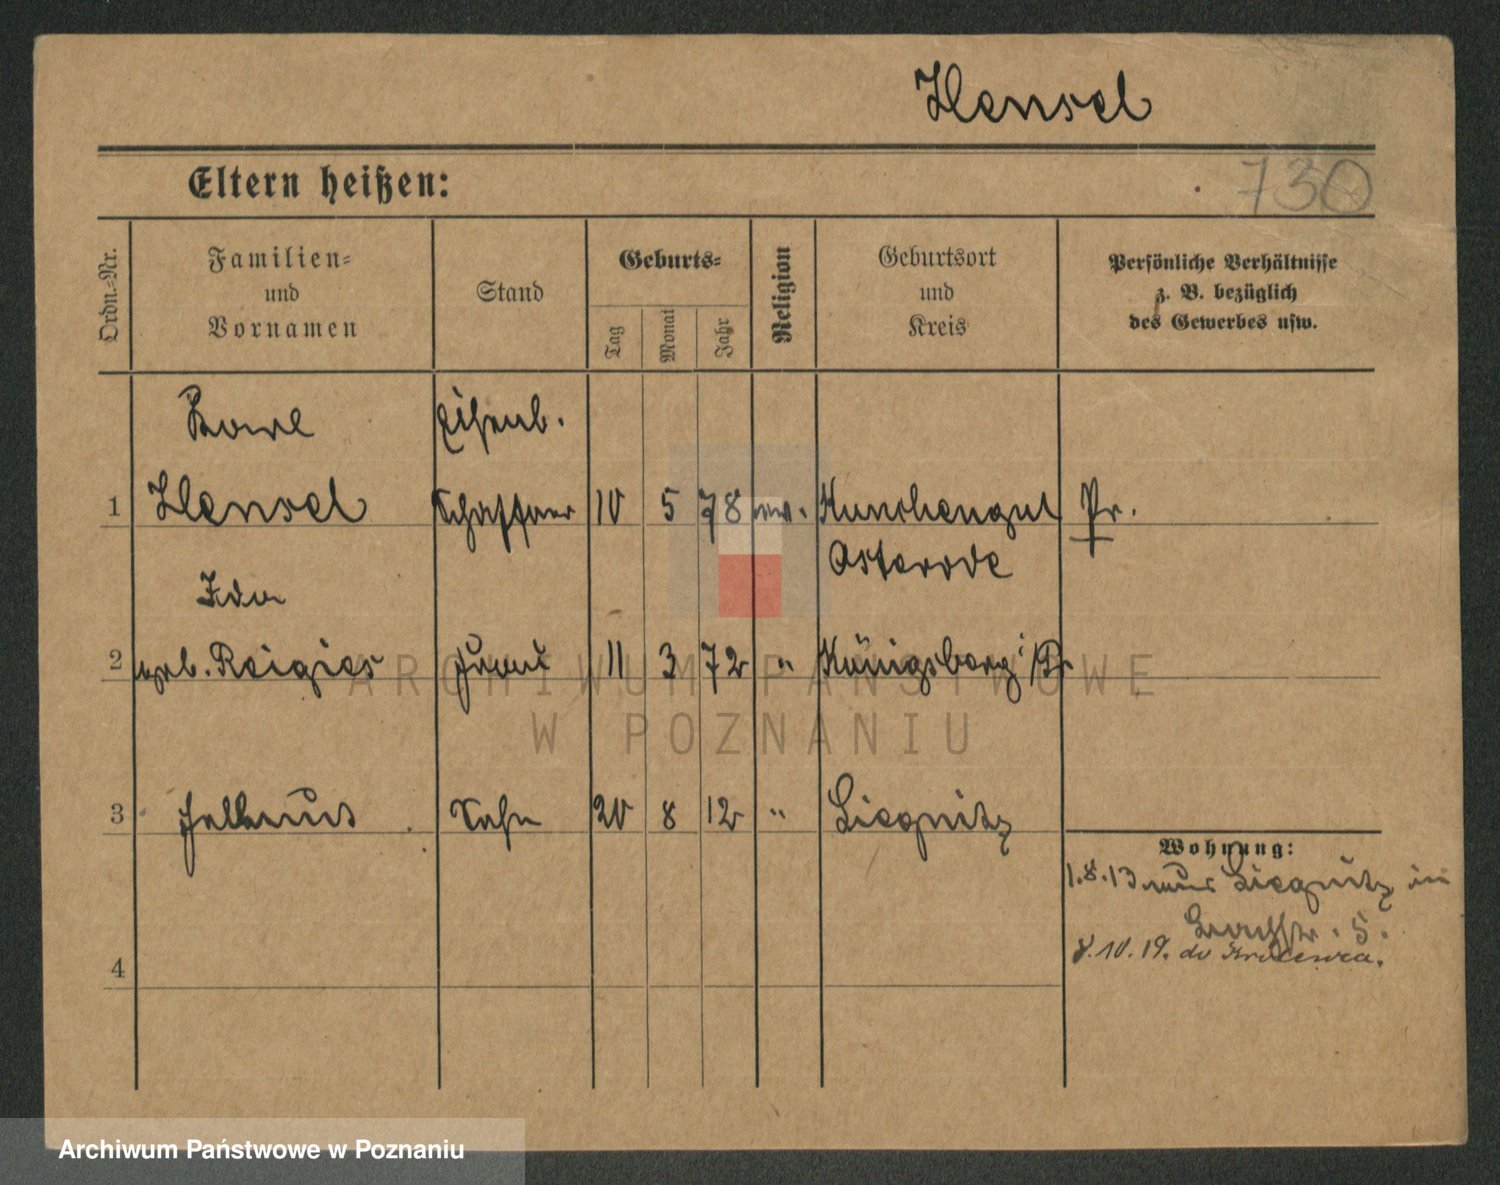 Hensel
Eltern heißen:
730
Ordn.-Nr.
Familien-
und
Vornamen
Stand
Geburts-
Tag
Monat
Jahr
Religion
Geburtsort
und
Kreis
Persönliche Verhältnisse
z. B. bezüglich
des Gewerbes usw.
Karl Eisenb.
1 Hensel Schaffner 10 5 78 ev. Kunchengut Pr.
Osterode
Ida
2 geb. Reigies Frau 11 3 72 " Königsberg i/Pr
3 Hellmut Sohn 20 8 12 " Liegnitz
Wohnung:
1.8.13 aus Liegnitz in
5.
8.10.19. do Krolewca.
4
ARCHIWUM PAŃSTWOWE
W POZNANIU
Archiwum Państwowe w Poznaniu